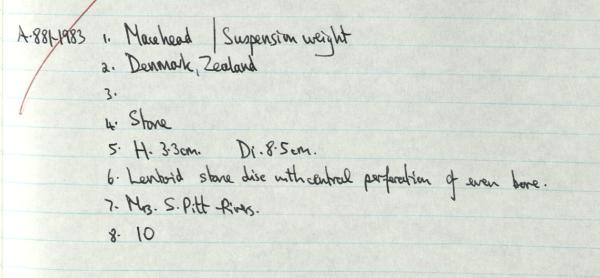 A.881-1983 1. Macehead / Suspension weight
2. Denmark, Zealand
3.
4. Stone
5. H. 3.3cm. Di. 8.5cm.
6. Lentoid stone disc with central perforation of even bore.
7. Mrs. S. Pitt-Rivers.
8. 10